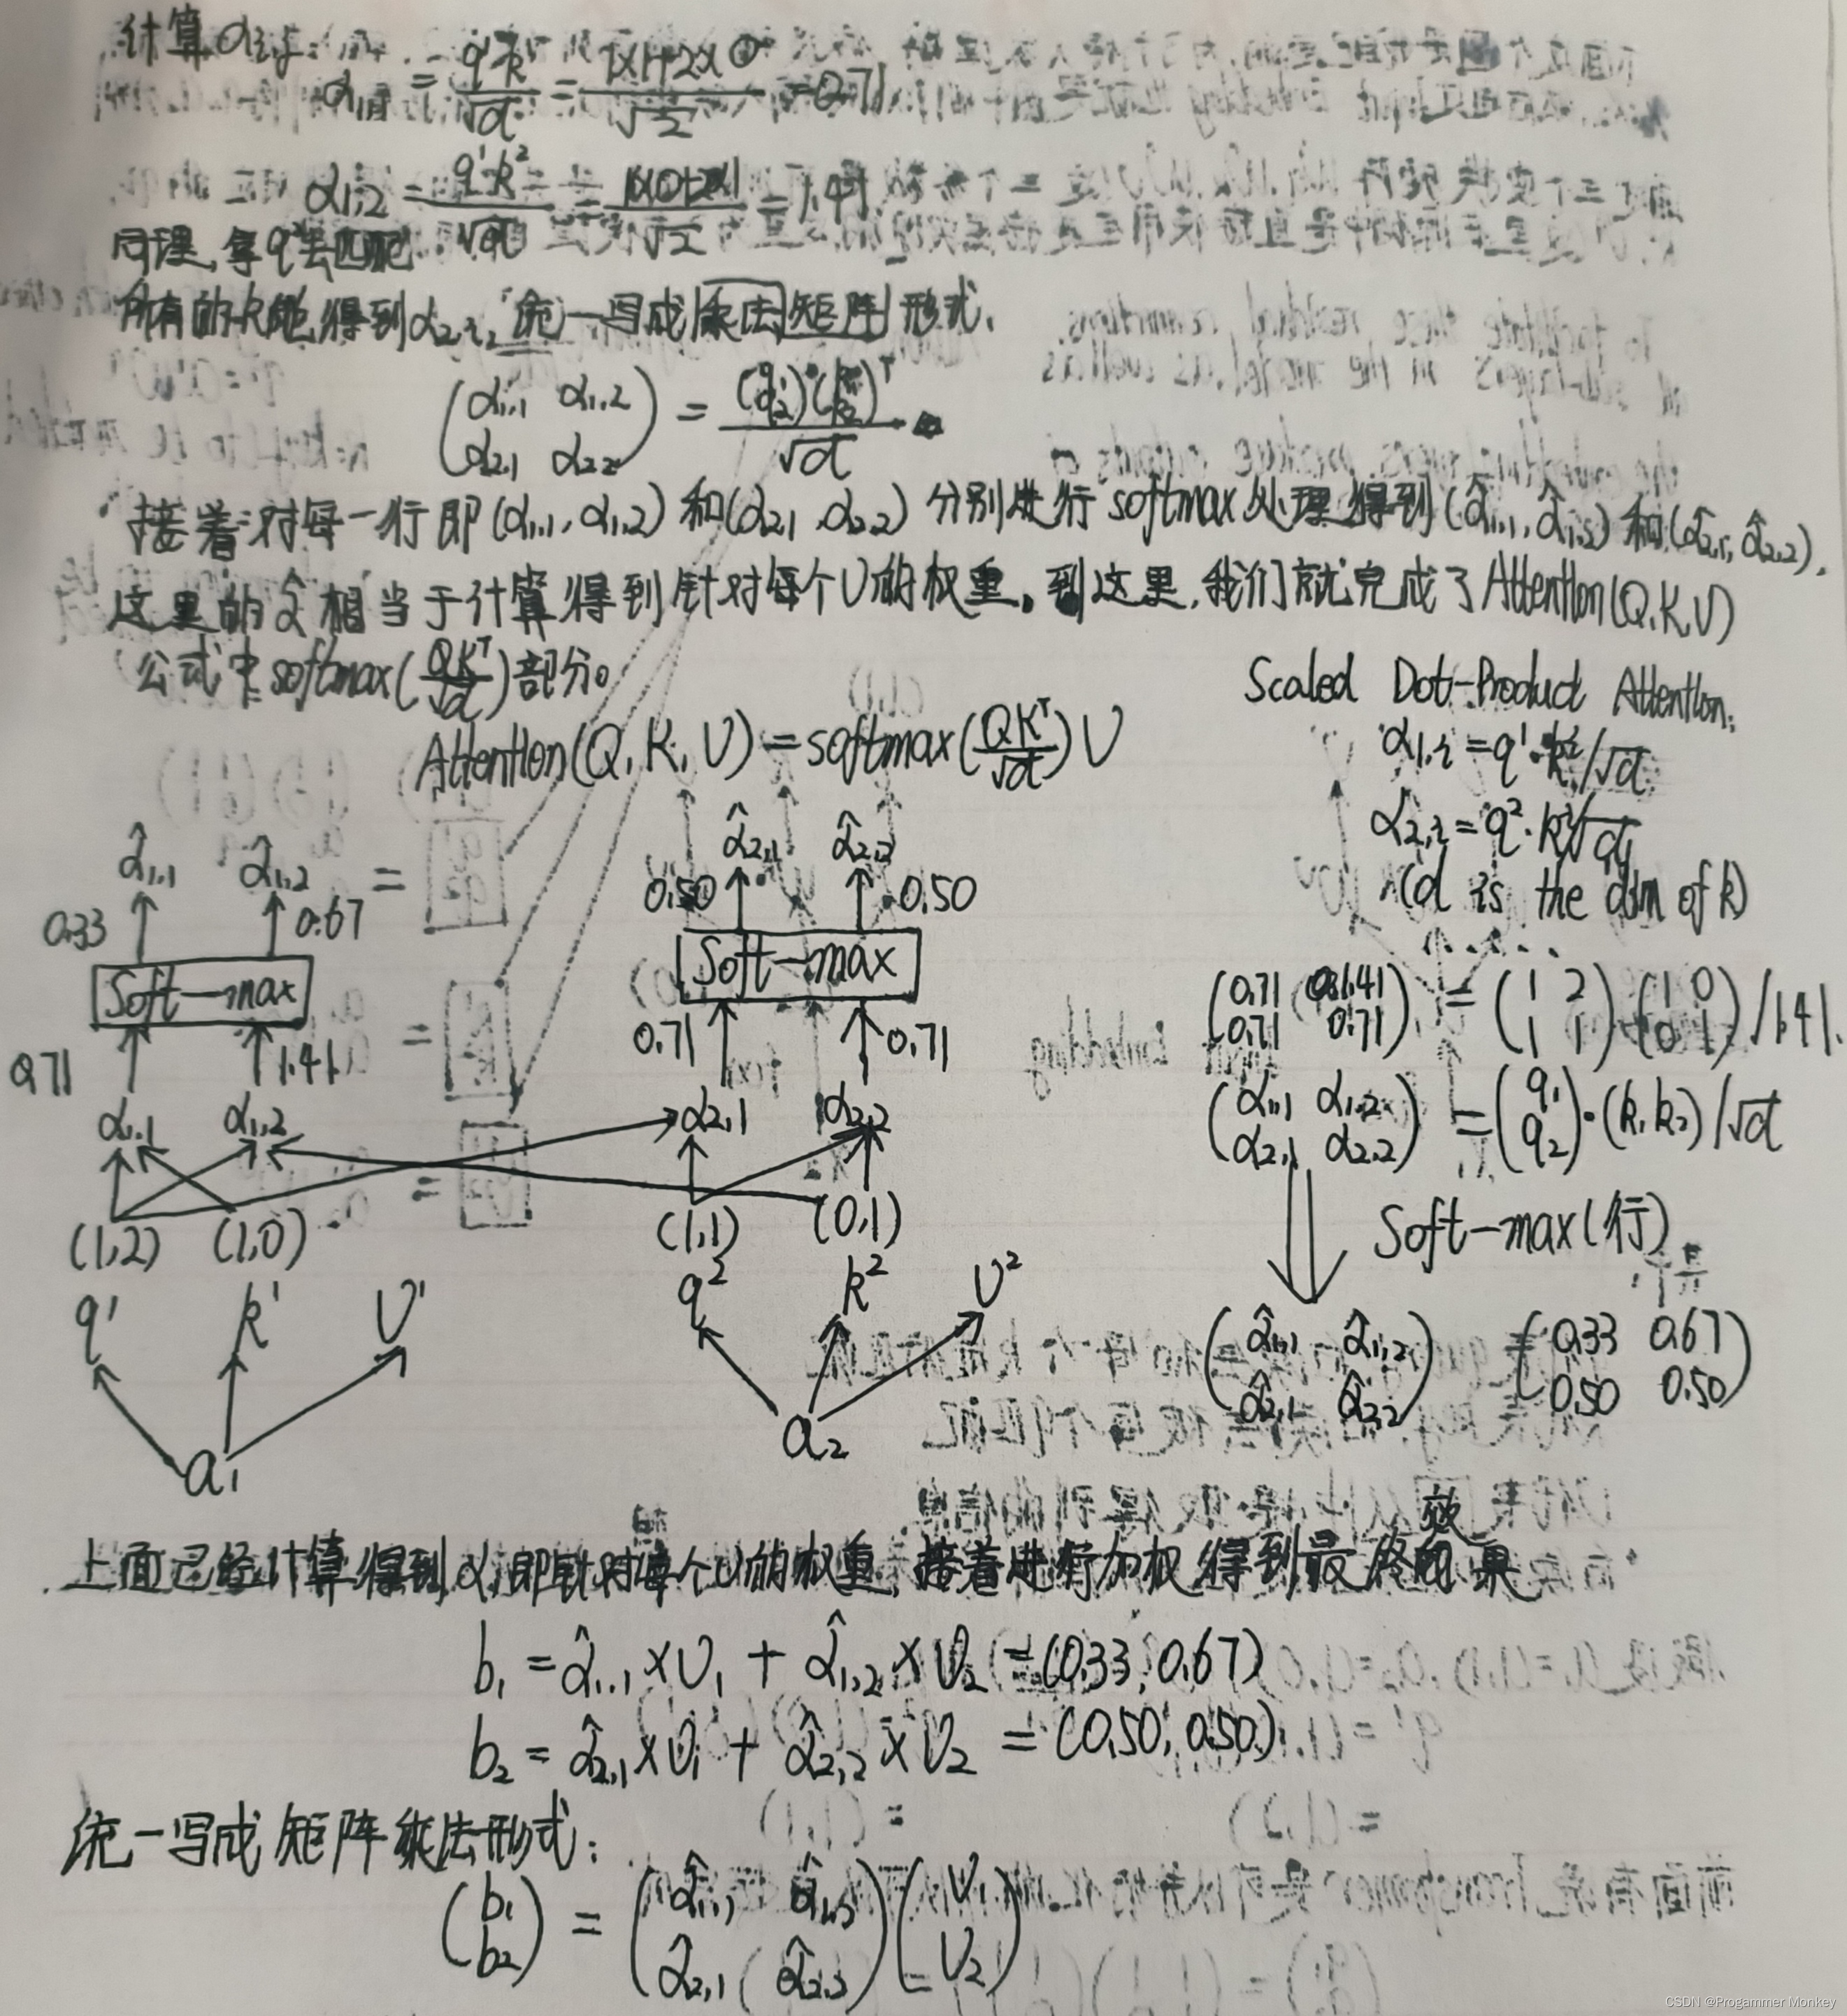 计算α₂,ᵢ:
α₁,₁ = q¹·k¹/√d = 1×1+2×0/√2 = 0.71
α₁,₂ = q¹·k²/√d = 1×0+2×1/√2 = 1.41
同理,拿q²去匹配
所有的k能得到α₂,ᵢ,统一写成乘法矩阵形式.
(α₁,₁ α₁,₂
α₂,₁ α₂,₂) = (q¹ q²)(k¹ k²)ᵀ/√d
接着对每一行即(α₁,₁, α₁,₂)和(α₂,₁, α₂,₂)分别进行softmax处理得到(α̂₁,₁, α̂₁,₂)和(α̂₂,₁, α̂₂,₂),
这里的α̂相当于计算得到针对每个V的权重。到这里,我们就完成了Attention(Q,K,V)
公式中softmax(QKᵀ/√d)部分。
Attention(Q,K,V)=softmax(QKᵀ/√d)V
Scaled Dot-Product Attention:
α₁,ᵢ = q¹·kⁱ/√d
α₂,ᵢ = q²·kⁱ/√d
(d is the dim of k)
α̂₁,₁ α̂₁,₂
0.33 0.67
Soft-max
0.71 1.41
α₁,₁ α₁,₂
(1,2) (1,0)
q¹ k¹ V¹
a₁
α̂₂,₁ α̂₂,₂
0.50 0.50
Soft-max
0.71 0.71
α₂,₁ α₂,₂
(1,1) (0,1)
q² k² V²
a₂
(0.71 1.41
0.71 0.71) = (1 2
1 1)(1 0
0 1)/1.41.
(α₁,₁ α₁,₂
α₂,₁ α₂,₂) = (q₁
q₂)·(k₁ k₂)/√d
Soft-max(行)
(α̂₁,₁ α̂₁,₂
α̂₂,₁ α̂₂,₂) (0.33 0.67
0.50 0.50)
上面已经计算得到α,即针对每个V的权重,接着进行加权得到最终效果
b₁ = α̂₁,₁×V₁ + α̂₁,₂×V₂ = (0.33, 0.67)
b₂ = α̂₂,₁×V₁ + α̂₂,₂×V₂ = (0.50, 0.50)
统一写成矩阵乘法形式:
(b₁
b₂) = (α̂₁,₁ α̂₁,₂
α̂₂,₁ α̂₂,₂)(V₁
V₂)
CSDN @Progammer Monkey